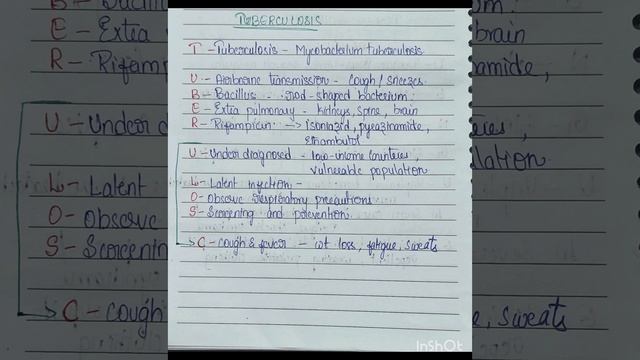 TUBERCULOSIS
T - Tuberculosis - Mycobacterium tuberculosis
U - Airborne transmission - cough / sneezes
B - Bacillus - rod-shaped bacterium
E - Extra pulmonary - kidneys, spine, brain
R - Rifampicin → isoniazid, pyrazinamide,
ethambutol
U - Under diagnosed - low-income countries,
vulnerable population
L - Latent infection -
O - Observe respiratory precautions
S - Screening and prevention
C - cough & fever - wt loss, fatigue, sweats
InShOt